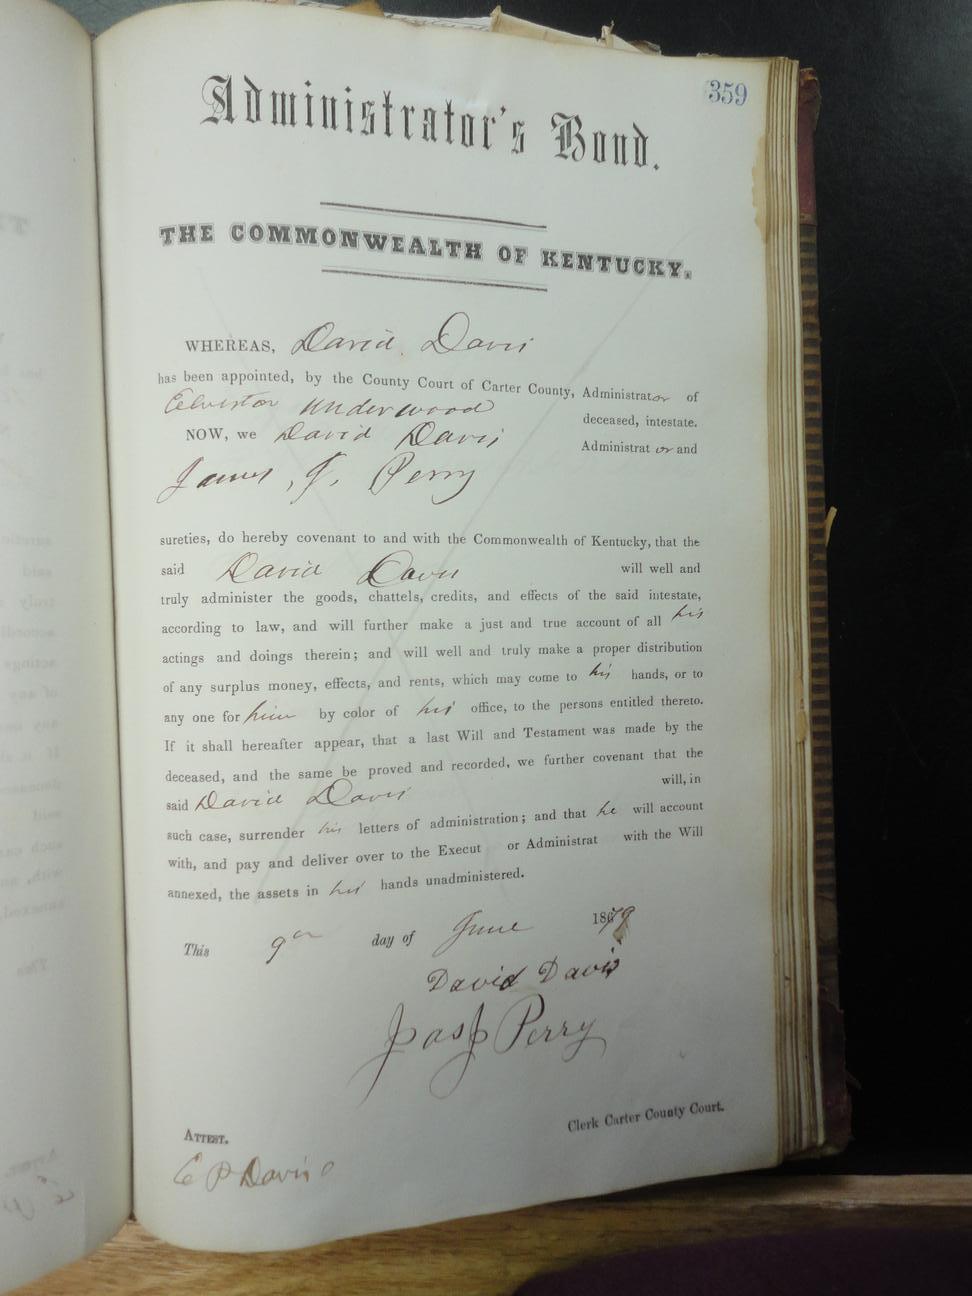 359
Administrator's Bond.
THE COMMONWEALTH OF KENTUCKY.
WHEREAS, David Davis
has been appointed, by the County Court of Carter County, Administrator of
Underwood deceased, intestate.
NOW, we David Davis Administrat or and
James J. Perry
sureties, do hereby covenant to and with the Commonwealth of Kentucky, that the
said David Davis will well and
truly administer the goods, chattels, credits, and effects of the said intestate,
according to law, and will further make a just and true account of all his
actings and doings therein; and will well and truly make a proper distribution
of any surplus money, effects, and rents, which may come to his hands, or to
any one for him by color of his office, to the persons entitled thereto.
If it shall hereafter appear, that a last Will and Testament was made by the
deceased, and the same be proved and recorded, we further covenant that the
said David Davis will, in
such case, surrender his letters of administration; and that he will account
with, and pay and deliver over to the Execut or Administrat with the Will
annexed, the assets in his hands unadministered.
This 9th day of June 1879
David Davis
Jas J Perry
Clerk Carter County Court.
ATTEST.
E P Davis